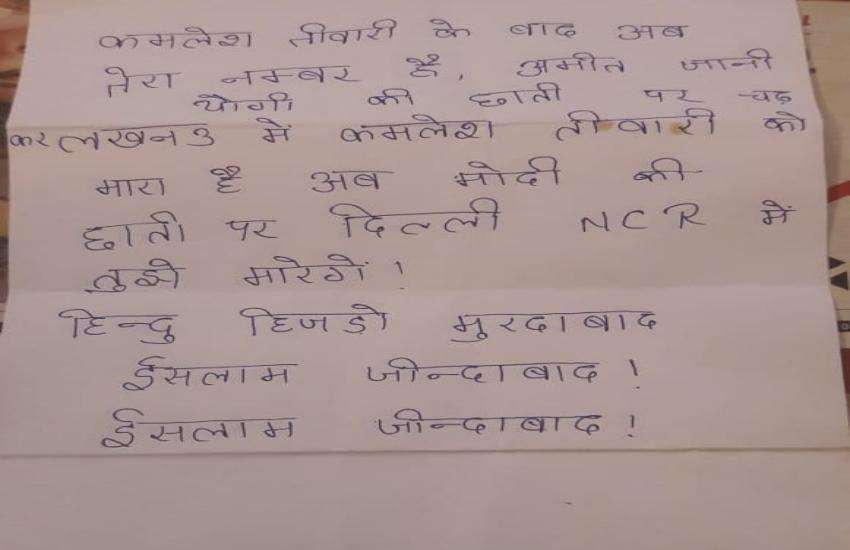 कमलेश तीवारी के बाद अब
तेरा नम्बर है, अमीत जानी
यौगी की छाती पर चढ़
कर लखनउ में कमलेश तीवारी को
मारा है अब मोदी की
छाती पर दिल्ली NCR में
तुझे मारेगें!
हिन्दु हिजडो मुरदाबाद
ईसलाम जीन्दाबाद!
ईसलाम जीन्दाबाद!